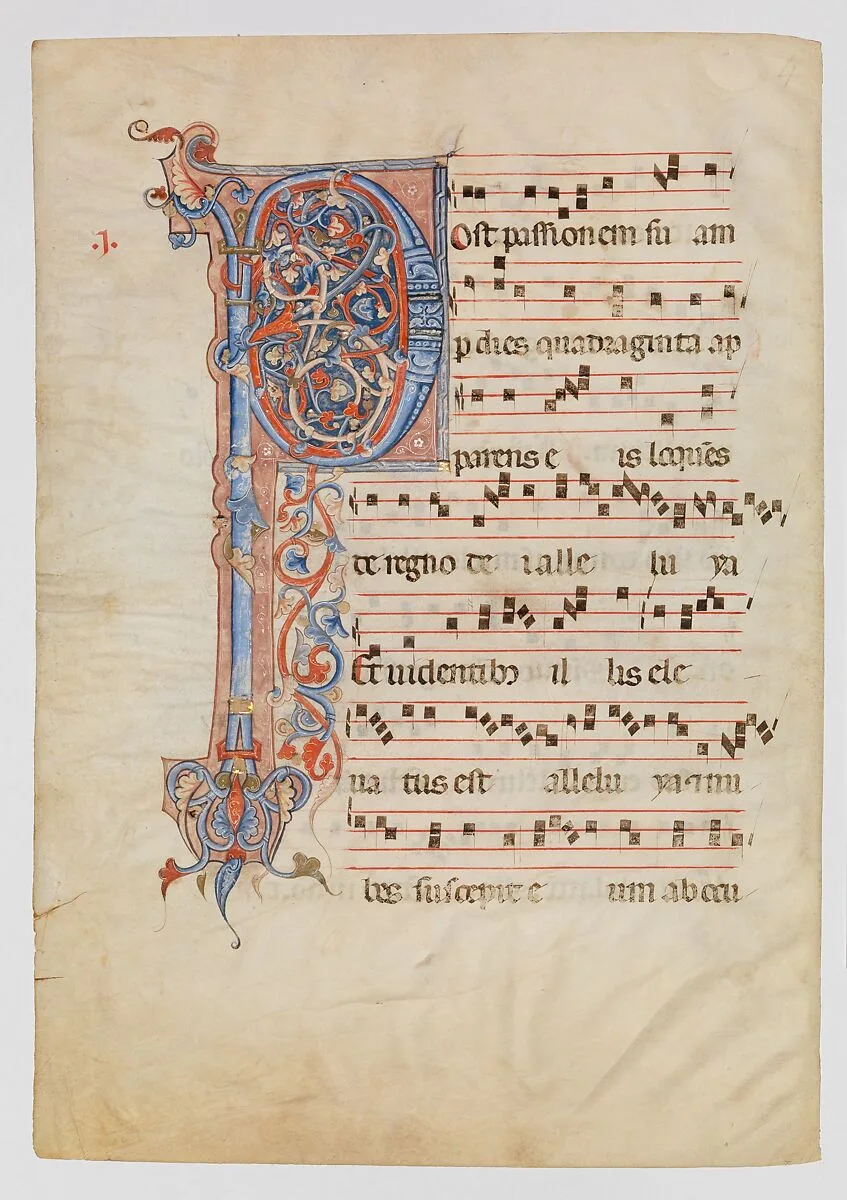 4
.I.
POst passionem su am
p dies quadraginta ap
parens e is loquēs
de regno de i alle lu ya
Et uidentibꝯ il lis ele
ua tus est allelu ya ⁊ nu
bes suscepit e um ab ocu